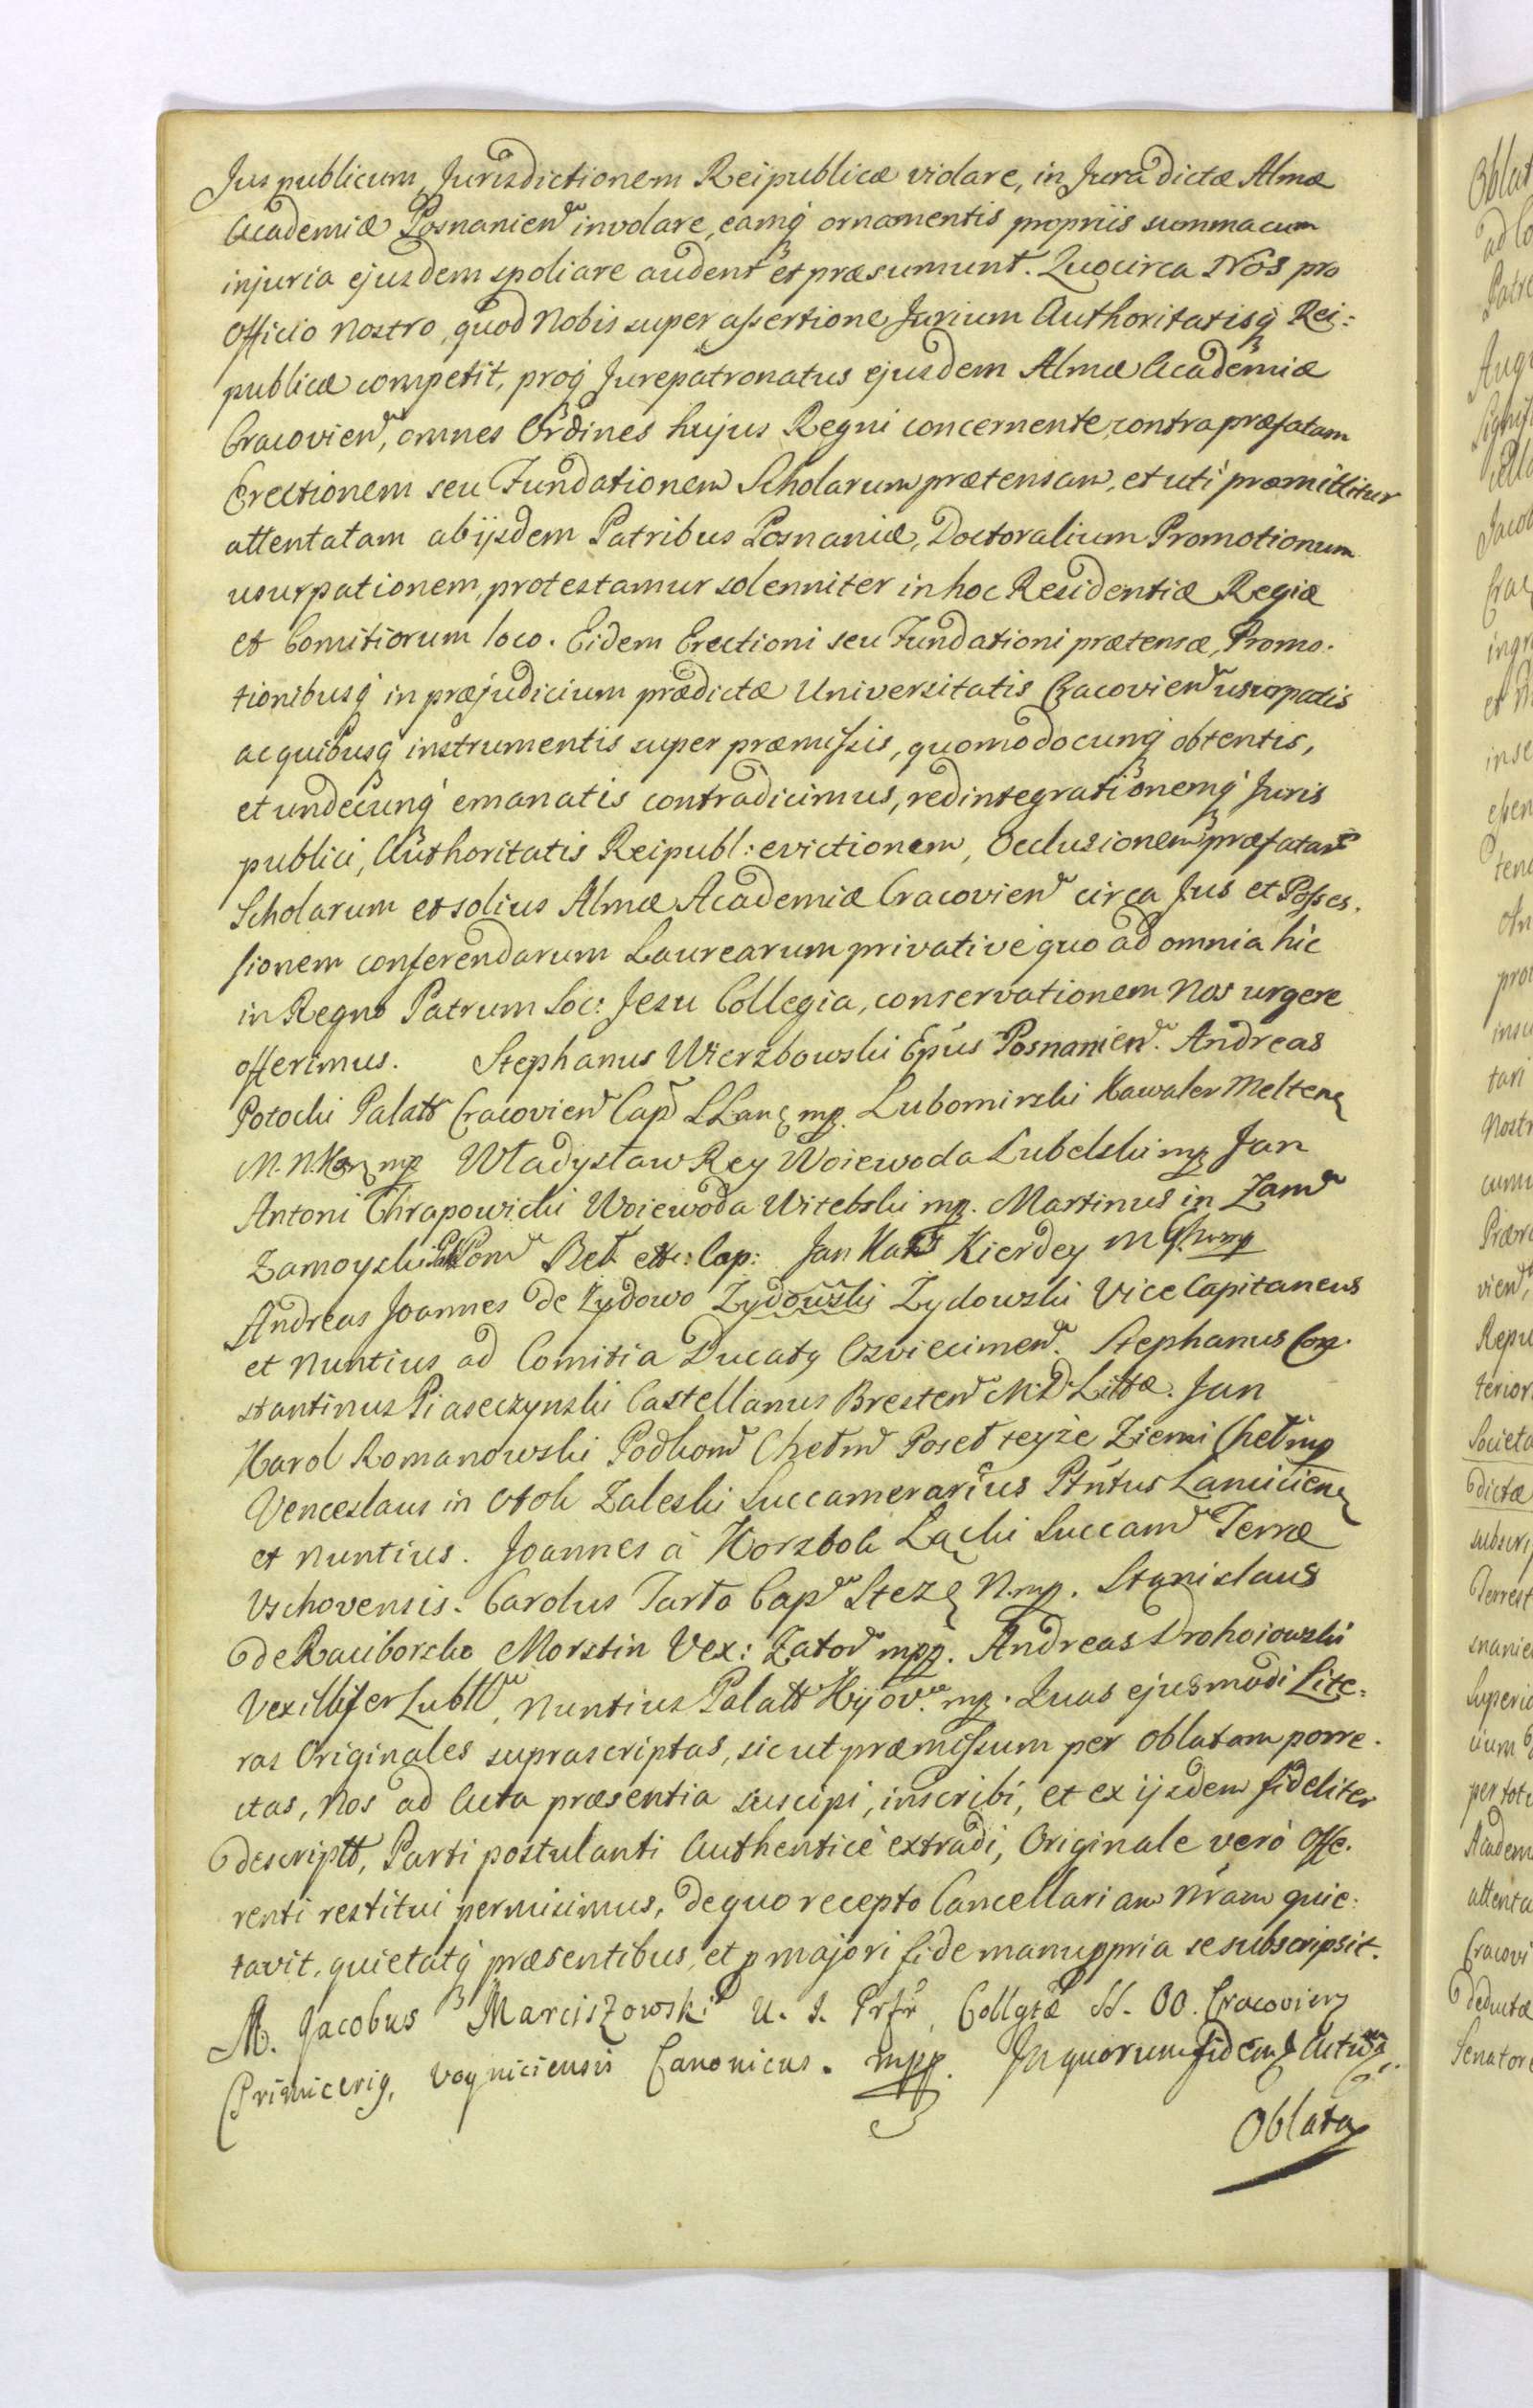 Jus publicum, Jurisdictionem Reipublicæ violare, in Jura dictæ Almæ
Academiæ Posnanien̄ involare, eamq́ ornamentis propriis summa cum
injuria ejusdem spoliare audent et præsumunt. Quocirca Nos pro
Officio nostro, quod Nobis super assertione Jurium Authoritatisq́ Rei:
publicæ competit, proq́ Jurepatronatus ejusdem Almæ Academiæ
Cracovien̄, omnes Ordines hujus Regni concernente, contra præfatam
Erectionem seu Fundationem Scholarum prætensam, et uti præmittitur
attentatam ab ijsdem Patribus Posnaniæ, Doctoralium Promotionum
usurpationem, protestamur solenniter in hoc Residentiæ Regiæ
et Comitiorum loco. Eidem Erectioni seu Fundationi prætensæ, Promo-
tionibusq́ in præjudicium prædictæ Universitatis Cracovien̄ usurpatis
ac quibusq́ instrumentis super præmissis, quomodocunq́ obtentis,
et undecunq́ emanatis contradicimus, redintegrationemq́ Juris
publici, Authoritatis Reipubl: evictionem, Occlusionem præfatar̄
Scholarum et solius Almæ Academiæ Cracovien̄ circa Jus et Posses-
sionem conferendarum Laurearum privativè quo ad omnia hic
in Regno Patrum Soc: Jesu Collegia, conservationem Nos urgere
offerimus. Stephanus Wierzbowski Ep̄us Posnanien̄. Andreas
Potocki Palatt Cracovien̄ Cap̄ mp. Lubomirski Kawaler Melten
M. N. Kor mp Władysław Rey Woiewoda Lubelski mp Jan
Antoni Chrapowicki Woiewoda Witebski mp. Martinus in Zam̄
Zamoyski Pom̄ Bet Cap: Jan Kierdey
Andreas Joannes de Zydowo Zydowski Zydowski Vice Capitaneus
et Nuntius ad Comitia Ducatq Osviecimen̄. Stephanus Con-
stantinus Piaseczynski Castellanus Bresten̄ M. D. Littæ. Jan
Karol Romanowski Podkom̄ Chełm̄ Poseł teyże Ziemi Chełm mp
Venceslaus in Otok Zaleski Succamerarius Lancicien
et Nuntius. Joannes à Korzbok Łącki Succam̄ Terræ
Vschovensis. Carolus Tarło Cap̄ Stez N. mp. Stanislaus
de Raciborsko Morstin Vex: Zator̄ mpp. Andreas Drohoiowski
Vexillifer Lubll̄, Nuntius Palatt Kijov̄. mp. Quas ejusmodi Lite:
ras Originales suprascriptas, sicut præmissum per oblatam porre-
ctas, Nos ad Acta præsentia suscipi, inscribi, et ex ijsdem fideliter
descriptt, Parti postulanti Authenticè extradi, Originale verò Offe-
renti restitui permisimus, de quo recepto Cancellariam Nr̄am quie:
tavit, quietatq́ præsentibus, et p majori fide manu ppria se subscripsit.
M. Jacobus Marciszowski U. J. Prf̄r, Collgtæ SS. OO. Cracovien
Primicerig, Voyniciensis Canonicus. mpp. In quorum fidem
Oblata